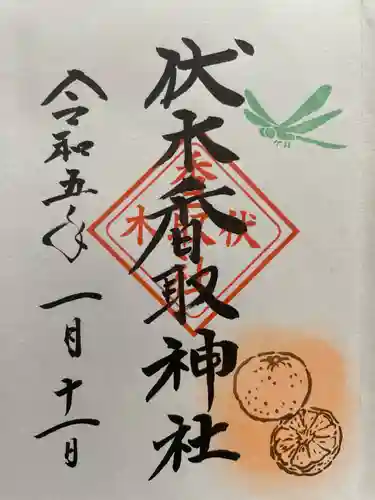 伏木香取神社
令和五年
一月十一日
伏木
香取
神社